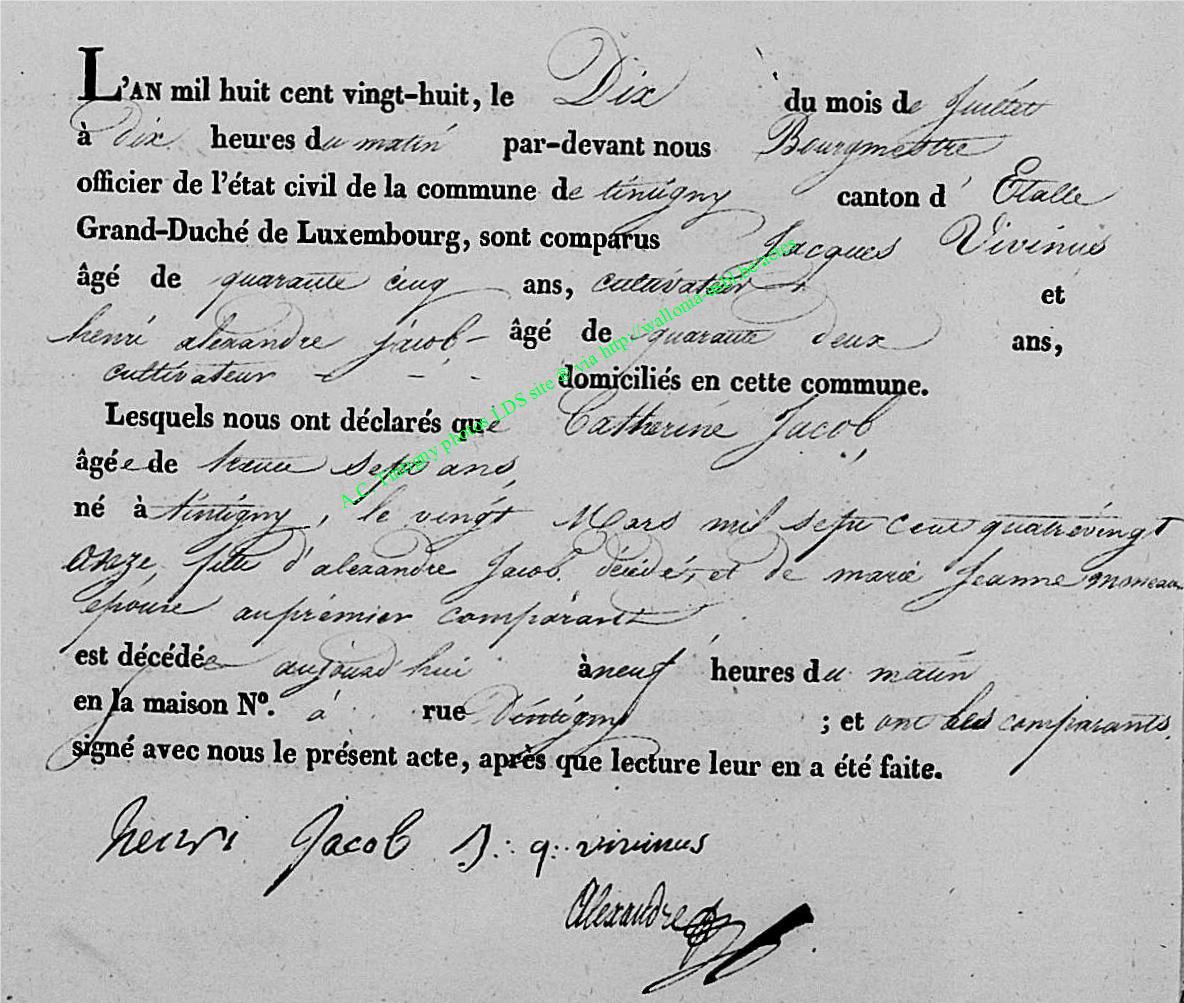 L'AN mil huit cent vingt-huit, le Dix du mois de Juillet
à dix heures du matin par-devant nous Bourgmestre
officier de l'état civil de la commune de tintigny canton d' Etalle
Grand-Duché de Luxembourg, sont comparus Jacques Vivinus
âgé de quarante cinq ans, cultivateur et
henri alexandre jacob - âgé de quarante deux ans,
cultivateur - - - domiciliés en cette commune.
Lesquels nous ont déclarés que Catherine Jacob
âgée de trente sept ans
né à tintigny, le vingt Mars mil sept cent quatrevingt
onze, fille d'alexandre Jacob, décédé, et de marie Jeanne moneau
épouse au prémier comparant
est décédée aujourd'hui à neuf heures du matin
en la maison N°. à rue tintigny ; et ont les comparants
signé avec nous le présent acte, après que lecture leur en a été faite.
henri Jacob J: q: vivinus
Alexandre
A.C. Tintigny photos LDS site © via http://wallonia-